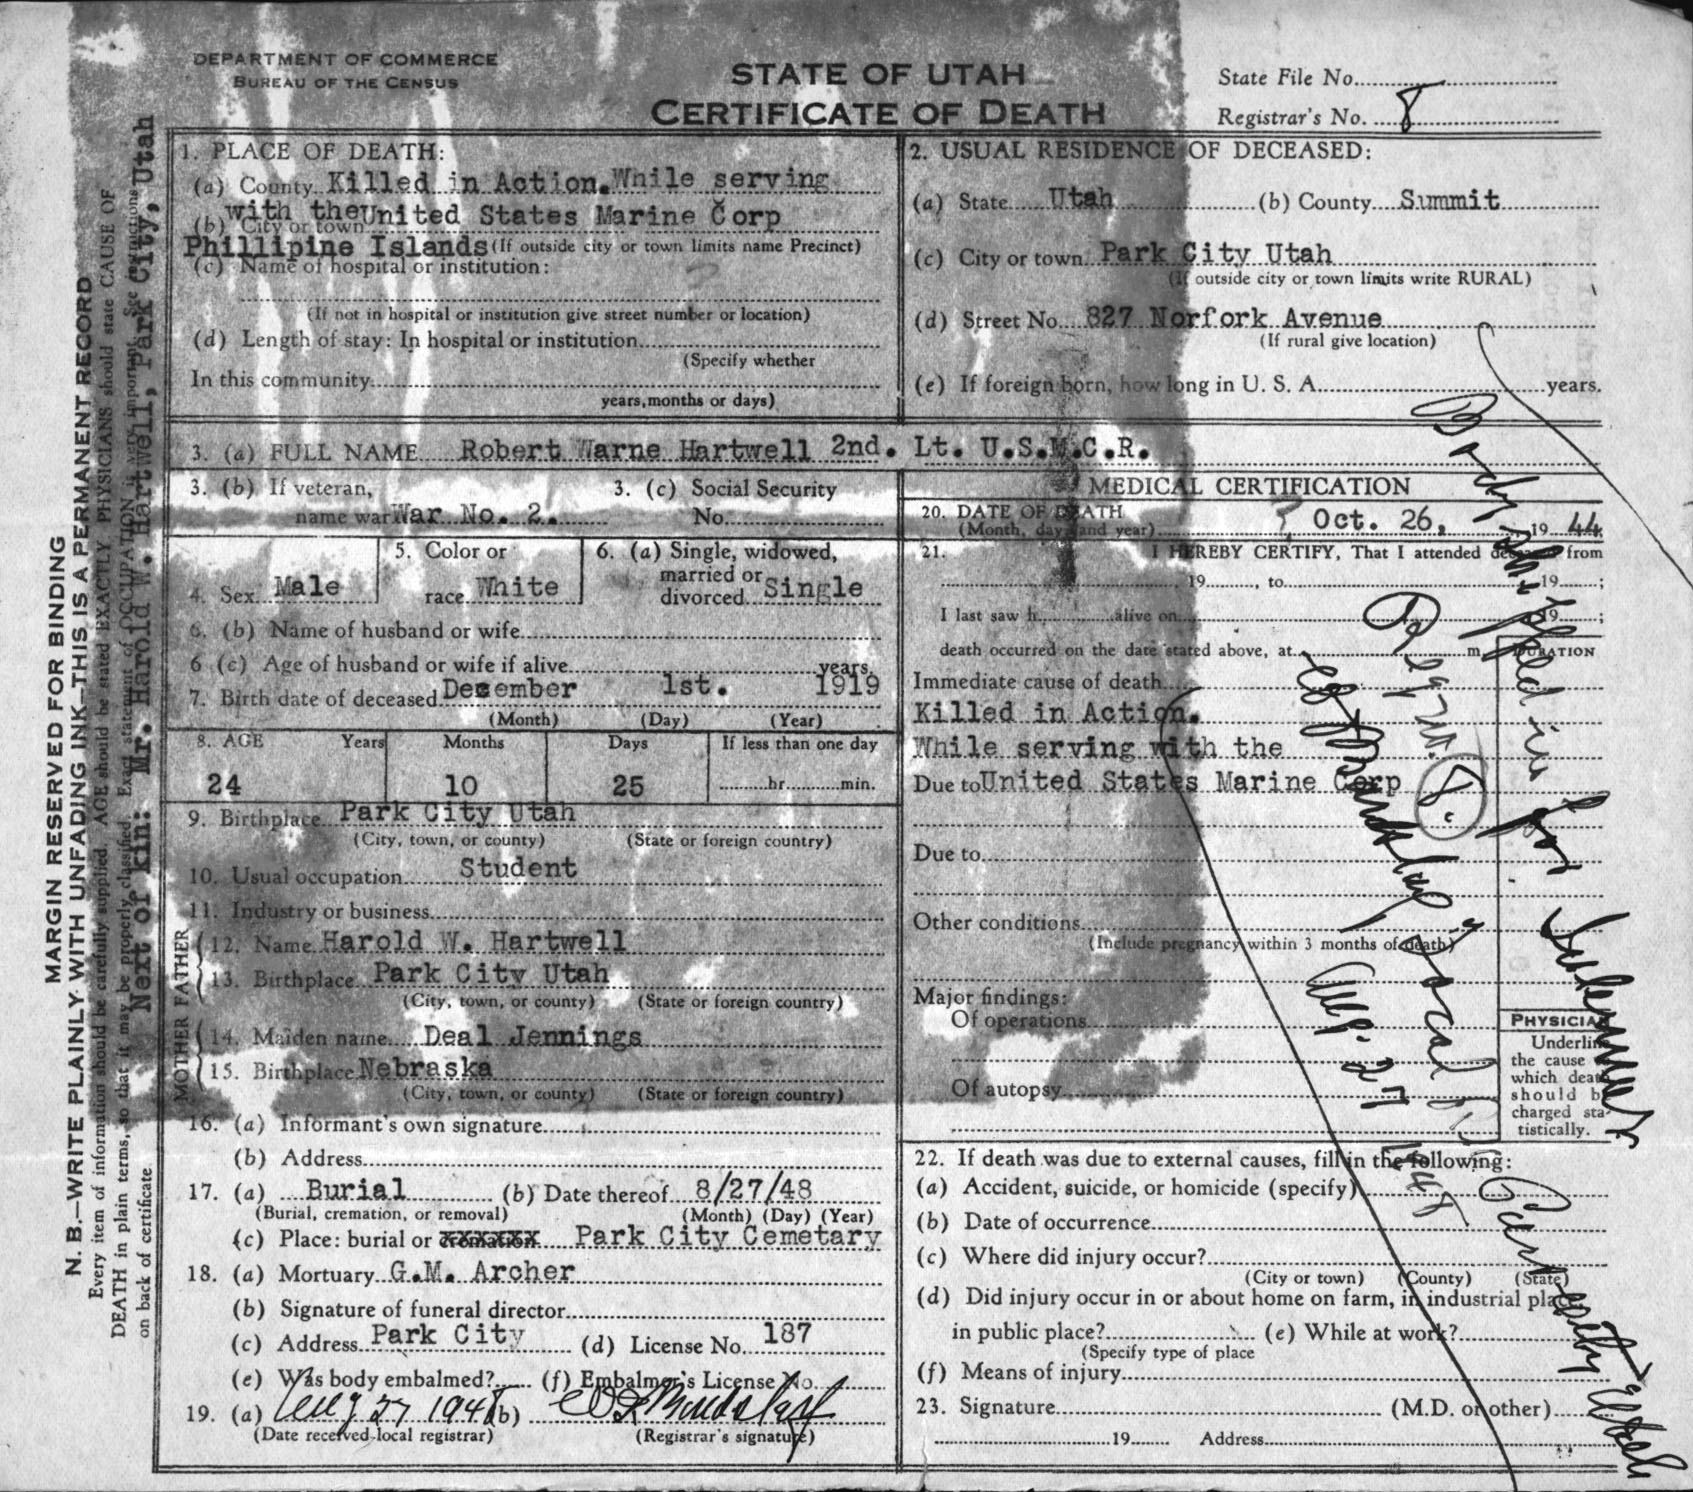 DEPARTMENT OF COMMERCE
BUREAU OF THE CENSUS
STATE OF UTAH
CERTIFICATE OF DEATH
State File No.
Registrar's No. 8
1. PLACE OF DEATH:
(a) County Killed in Action. While serving
(b) City or town with the United States Marine Corp
Phillipine Islands (If outside city or town limits name Precinct)
(c) Name of hospital or institution:
(If not in hospital or institution give street number or location)
(d) Length of stay: In hospital or institution
(Specify whether
In this community
years, months or days)
2. USUAL RESIDENCE OF DECEASED:
(a) State Utah (b) County Summit
(c) City or town Park City Utah
(If outside city or town limits write RURAL)
(d) Street No. 827 Norfork Avenue
(If rural give location)
(e) If foreign born, how long in U. S. A. years.
3. (a) FULL NAME Robert Warne Hartwell 2nd. Lt. U.S.M.C.R.
3. (b) If veteran, name war War No. 2.
3. (c) Social Security No.
4. Sex Male
5. Color or race White
6. (a) Single, widowed, married or divorced Single
6. (b) Name of husband or wife
6 (c) Age of husband or wife if alive years,
7. Birth date of deceased December 1st. 1919
(Month) (Day) (Year)
8. AGE Years Months Days If less than one day
24 10 25 hr. min.
9. Birthplace Park City Utah
(City, town, or county) (State or foreign country)
10. Usual occupation Student
11. Industry or business
FATHER
12. Name Harold W. Hartwell
13. Birthplace Park City Utah
(City, town, or county) (State or foreign country)
MOTHER
14. Maiden name Deal Jennings
15. Birthplace Nebraska
(City, town, or county) (State or foreign country)
16. (a) Informant's own signature
(b) Address
17. (a) Burial (b) Date thereof 8/27/48
(Burial, cremation, or removal) (Month) (Day) (Year)
(c) Place: burial or cremation Park City Cemetary
18. (a) Mortuary G.M. Archer
(b) Signature of funeral director
(c) Address Park City (d) License No. 187
(e) Was body embalmed? (f) Embalmer's License No.
19. (a) Aug 27 1948 (b)
(Date received local registrar) (Registrar's signature)
MEDICAL CERTIFICATION
20. DATE OF DEATH
(Month, day and year) Oct. 26, 1944
21. I HEREBY CERTIFY, That I attended deceased from
19 , to 19 ;
I last saw h alive on 19 ;
death occurred on the date stated above, at m.
DURATION
Immediate cause of death
Killed in Action.
While serving with the
Due to United States Marine Corp
Due to
Other conditions
(Include pregnancy within 3 months of death)
Major findings:
Of operations
Of autopsy
PHYSICIAN
Underline
the cause to
which death
should be
charged sta-
tistically.
22. If death was due to external causes, fill in the following:
(a) Accident, suicide, or homicide (specify)
(b) Date of occurrence
(c) Where did injury occur?
(City or town) (County) (State)
(d) Did injury occur in or about home on farm, in industrial place,
in public place? (e) While at work?
(Specify type of place
(f) Means of injury
23. Signature (M.D. or other)
19 Address
Body shipped in for Interment
Park City Utah
8
Local
Aug. 27 1948
MARGIN RESERVED FOR BINDING
N. B.—WRITE PLAINLY WITH UNFADING INK—THIS IS A PERMANENT RECORD
Every item of information should be carefully supplied. AGE should be stated EXACTLY. PHYSICIANS should state CAUSE OF
DEATH in plain terms, so that it may be properly classified. Exact statement of OCCUPATION is very important. See instructions
on back of certificate.
Next of kin: Mr. Harold W. Hartwell, Park City, Utah